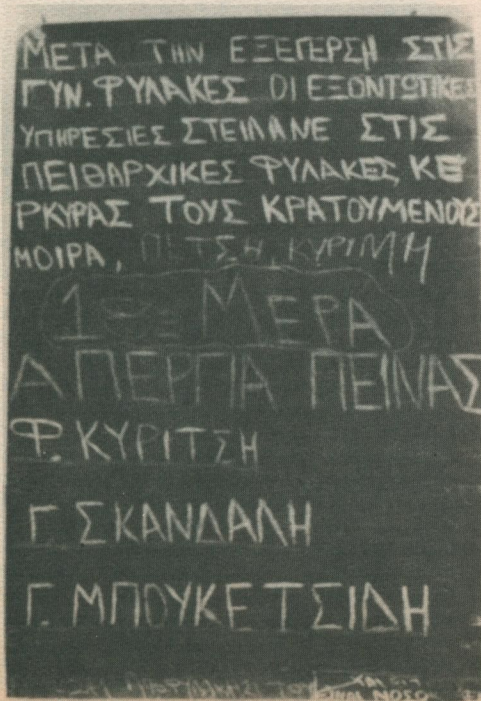 ΜΕΤΑ ΤΗΝ ΕΞΕΓΕΡΣΗ ΣΤΙΣ
ΓΥΝ. ΦΥΛΑΚΕΣ ΟΙ ΕΞΟΝΤΩΤΙΚΕΣ
ΥΠΗΡΕΣΙΕΣ ΣΤΕΙΛΑΝΕ ΣΤΙΣ
ΠΕΙΘΑΡΧΙΚΕΣ ΦΥΛΑΚΕΣ ΚΕ
ΡΚΥΡΑΣ ΤΟΥΣ ΚΡΑΤΟΥΜΕΝΟΥΣ
ΜΟΙΡΑ, ΠΕΤΣΗ, ΚΥΡΙΜΗ
ΜΕΡΑ
ΑΠΕΡΓΙΑ ΠΕΙΝΑΣ
Φ. ΚΥΡΙΤΣΗ
Γ. ΣΚΑΝΔΑΛΗ
Γ. ΜΠΟΥΚΕΤΣΙΔΗ
ΤΟΥ
ΕΙΝΑΙ ΝΟΣΟ